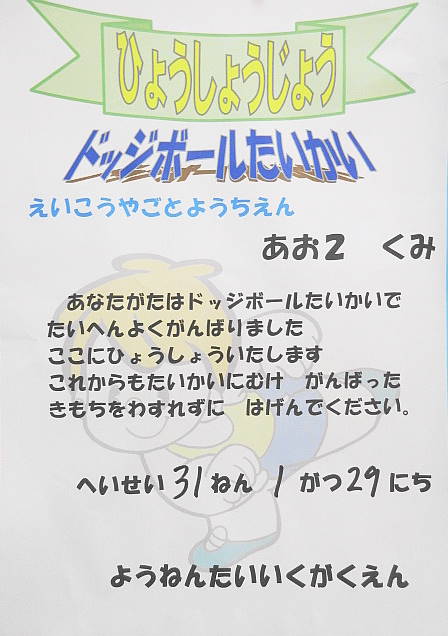 ひょうしょうじょう
ドッジボールたいかい
えいこうやごとようちえん
あお2 くみ
あなたがたはドッジボールたいかいで
たいへんよくがんばりました
ここにひょうしょういたします
これからもたいかいにむけ がんばった
きもちをわすれずに はげんでください。
へいせい31ねん1がつ29にち
ようねんたいいくがくえん